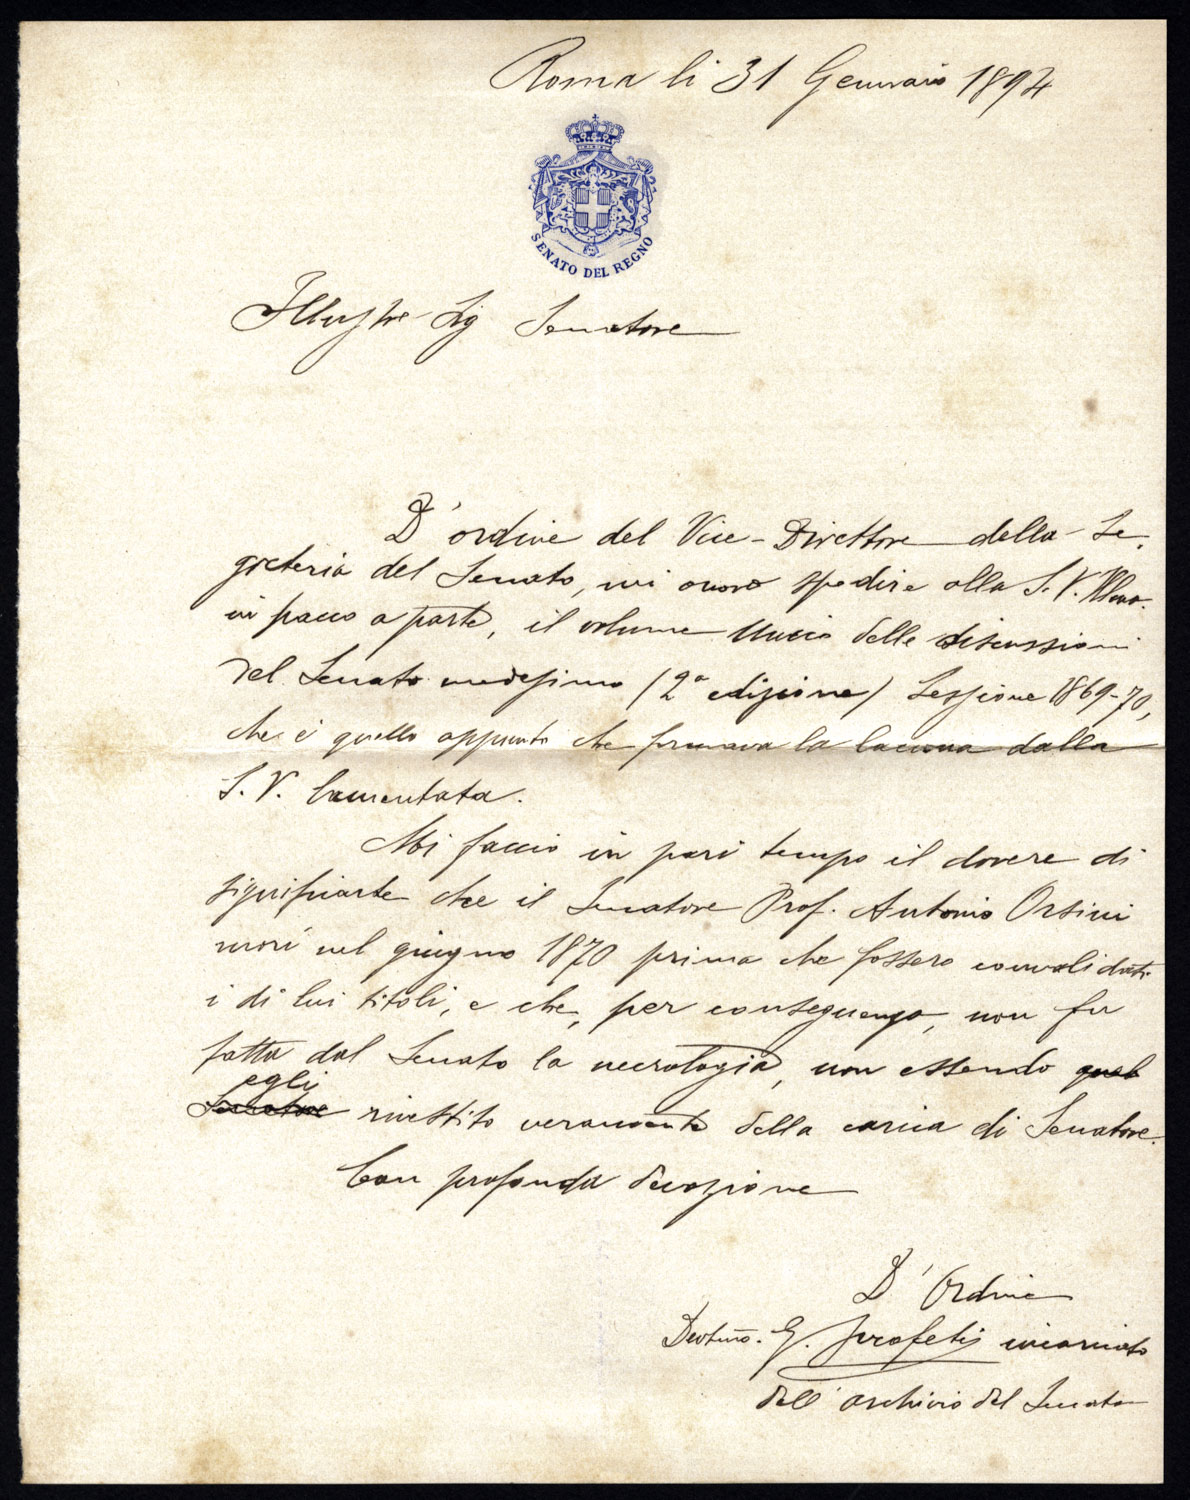 Roma li 31 Gennaio 1894
SENATO DEL REGNO
Illustre Sig Senatore
D'ordine del Vice-Direttore della Se-
greteria del Senato, mi onoro spedire alla S. V. Illma.
in pacco a parte, il volume unico delle discussioni
del Senato medesimo (2a edizione) Sessione 1869-70,
che è quello appunto che formava la lacuna dalla
S. V. lamentata.
Mi faccio in pari tempo il dovere di
significarle che il Senatore Prof. Antonio Orsini
morì nel giugno 1870 prima che fossero convalidati
i di lui titoli, e che, per conseguenza, non fu
fatta dal Senato la necrologia, non essendo quel
egli
Senatore rivestito veramente della carica di Senatore.
Con profonda devozione
D'Ordine
Devotmo. G. Profeti incaricato
dell'archivio del Senato